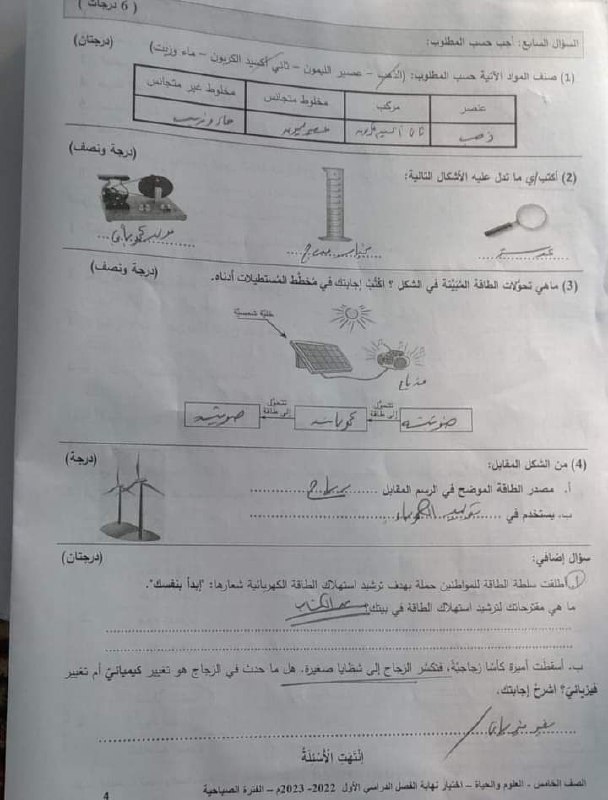 ( 6 درجات )
السؤال السابع: أجب حسب المطلوب:
(درجتان)
(1) صنف المواد الآتية حسب المطلوب: (الذهب – عصير الليمون – ثاني أكسيد الكربون – ماء وزيت)
عنصر مركب مخلوط متجانس مخلوط غير متجانس
ذهب ثاني أكسيد كربون عصير ليمون ماء وزيت
(2) أكتب/ي ما تدل عليه الأشكال التالية: (درجة ونصف)
عدسة مخبار مدرج مولد كهربائي
(3) ماهي تحوّلات الطاقة المُبيّنة في الشكل ؟ اكْتُبْ إجابتك في مُخطَّط المُستطيلات أدناه. (درجة ونصف)
خليّة شمسيّة
مذياع
ضوئية تتحوّل إلى طاقة كهربائية تتحوّل إلى طاقة صوتية
(4) من الشكل المقابل: (درجة)
أ. مصدر الطاقة الموضح في الرسم المقابل ........ رياح ........
ب. يستخدم في ...... توليد الكهرباء ......
سؤال إضافي: (درجتان)
أ. أطلقت سلطة الطاقة للمواطنين حملة بهدف ترشيد استهلاك الطاقة الكهربائية شعارها: "إبدأ بنفسك".
ما هي مقترحاتك لترشيد استهلاك الطاقة في بيتك؟
ب. أسقطت أميرة كأسًا زجاجيَّة، فتكسَّر الزجاج إلى شظايا صغيرة. هل ما حدث في الزجاج هو تغيير كيميائيّ أم تغيير
فيزيائيّ؟ اشرحْ إجابتك.
تغير فيزيائي
إنْتَهَتِ الْأَسْئِلَةُ
الصف الخامس - العلوم والحياة – اختبار نهاية الفصل الدراسي الأول 2022- 2023م – الفترة الصباحية
4